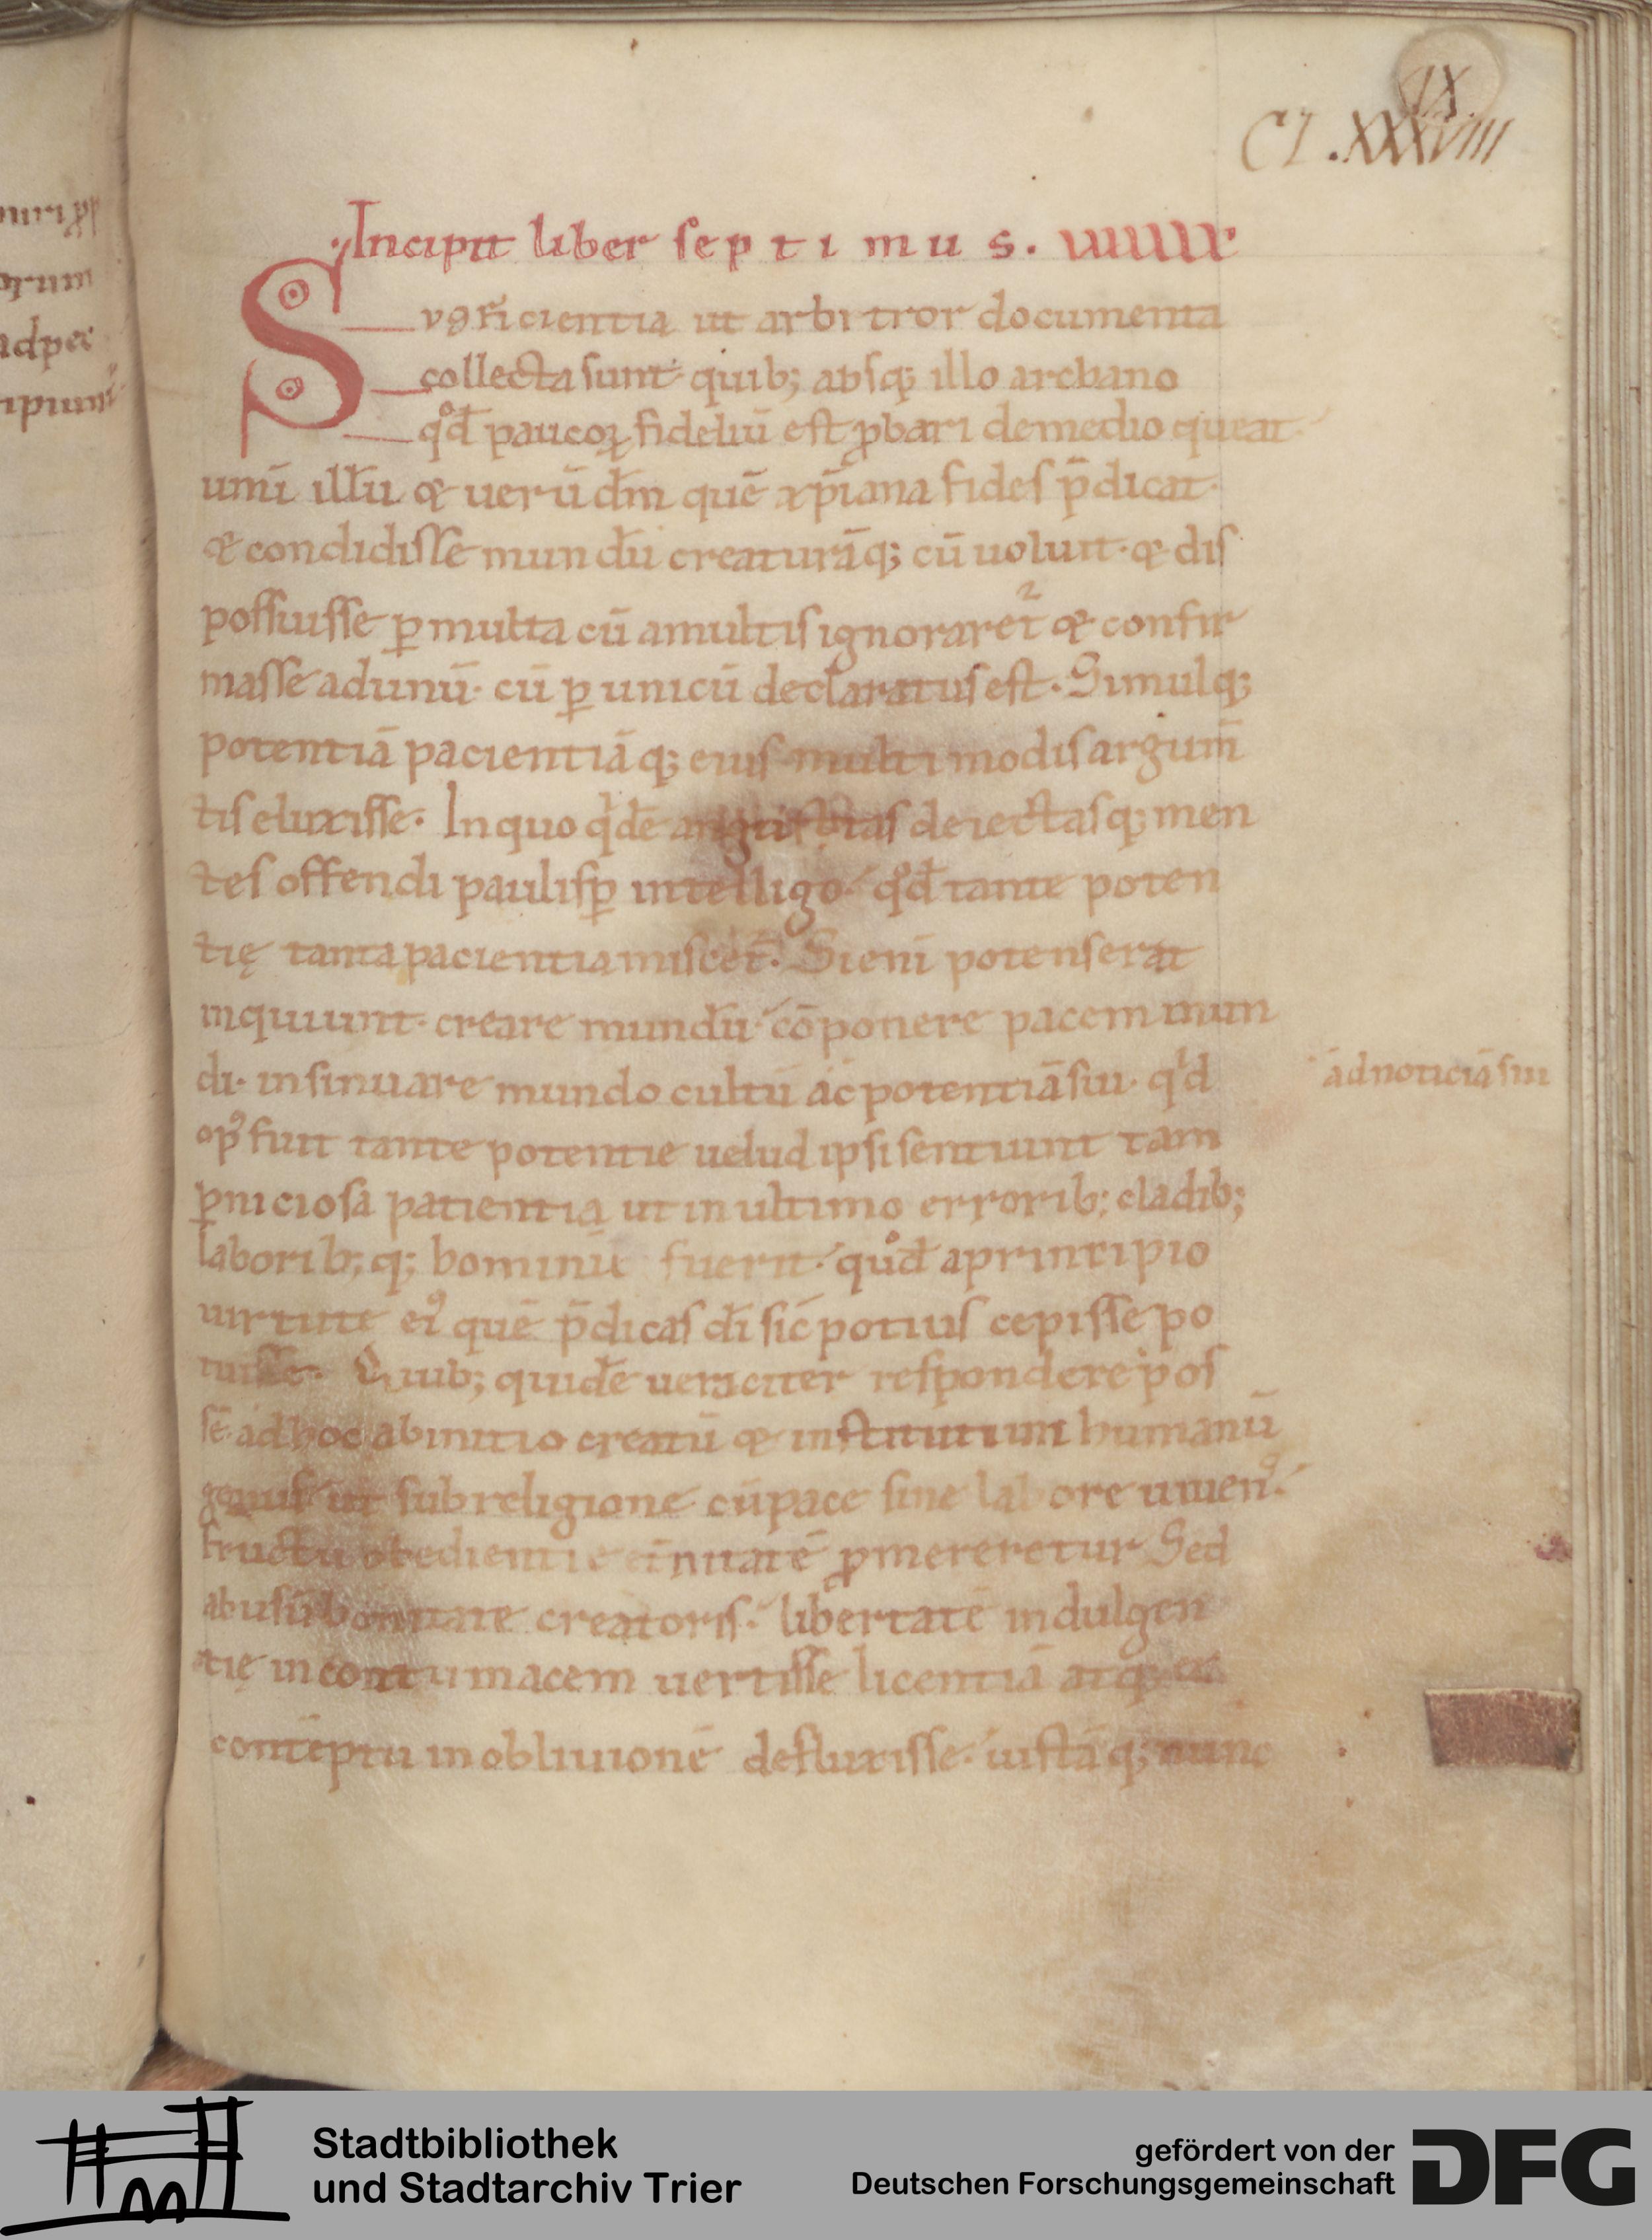 IX
CLXXXVIIII
Incipit liber septimus.
Sufficientia ut arbitror documenta
collecta sunt quib; absq; illo archano
qđ paucoꝝ fideliū est ꝓbari de medio queat
unū illū & uerū dm̄ quē xp̄iana fides p̄dicat·
& condidisse mundū creaturāq; cū uoluit· & dis
possuisse ꝑ multa cū a multis ignoraret̄ & confir
masse ad unū· cū ꝑ unicū declaratus est· Simulq;
potentiā pacientiāq; eius multimodis argum̄
tis eluxisse· In quo qdē angustas deiectasq; men
tes offendi paulisꝑ intelligo· qđ tante poten
tię tanta pacientia miscet̄· Si eni potens erat
inquiunt· creare mundū· cōponere pacem mun
di· insinuare mundo cultū ac potentiā sui· qd
ad noticiā sui
op᾿ fuit tante potentie uelud ipsi sentiunt tam
ꝑniciosa patientia ut in ultimo errorib; cladib;
laborib;q; hominū fuerit· quođ a principio
uirtute ei᾿ quē p̄dicas di sic potius cepisse po
tuisse· Quib; quidē ueraciter respondere pos
sē ad hoc ab initio creatū & institutum humanū
genus ut sub religione cū pace sine labore uiuen᾿
fructu obedientie etnitatē ꝓmereretur Sed
abusū bonitate creatoris· libertatē indulgen
tię in contumacem uertisse licentiā atq; ex
contēptu in obliuionē defluxisse· iustāq; nunc
Stadtbibliothek
und Stadtarchiv Trier
gefördert von der
Deutschen Forschungsgemeinschaft
DFG